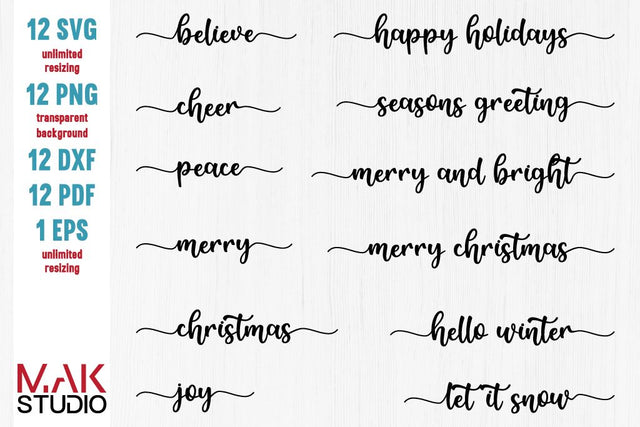 12 SVG
unlimited
resizing
12 PNG
transparent
background
12 DXF
12 PDF
1 EPS
unlimited
resizing
MAK
STUDIO
believe
cheer
peace
merry
christmas
joy
happy holidays
seasons greeting
merry and bright
merry christmas
hello winter
let it snow